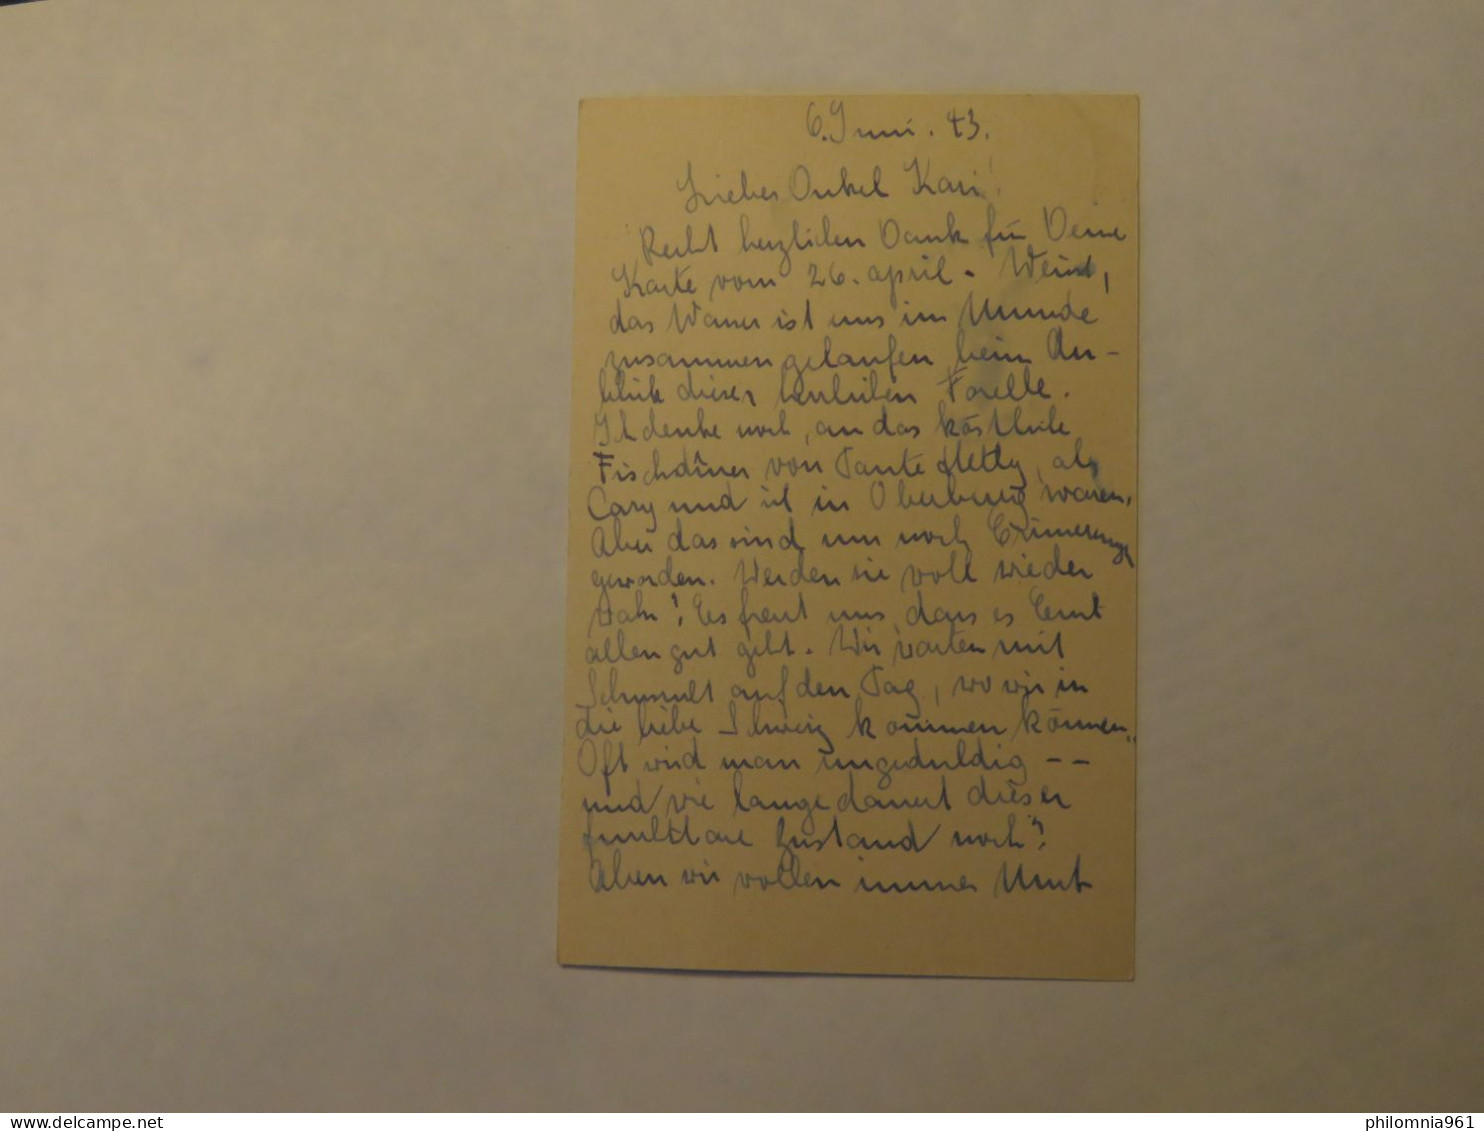 6. Juni. 43.
Lieber Onkel Kari!
Recht herzlichen Dank für Deine
Karte vom 26. april. Weist,
das Wasser ist uns im Munde
zusammengelaufen beim An-
blick dieser herrlichen Forelle.
Ich denke noch, an das köstliche
Fischdîner von Tante Hetty, als
Cary und ich in Oberburg waren.
Aber das sind nun noch Erinnerungen
geworden. Werden sie wohl wieder
wahr? Es freut uns, dass es Euch
allen gut geht. Wir warten mit
Sehnsucht auf den Tag, wo wir in
die liebe Schweiz kommen können.
Oft wird man ungeduldig --
und wie lange dauert dieser
furchtbare Zustand noch?
Aber wir wollen immer Mut
delcampe.net
philomnia961